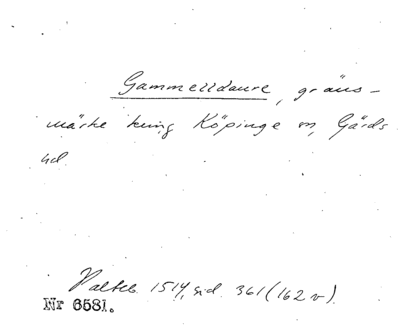 Gammelldaure, gräns-
märke kring Köpinge sn, Gärds
hd.
1514, sid. 361 (162 v).
Nr 6581.